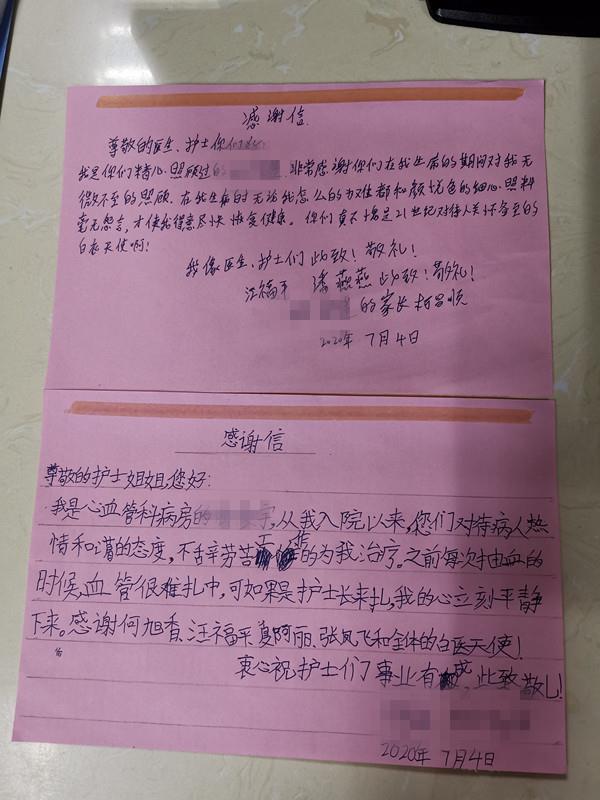 感谢信
尊敬的医生、护士你们好
我是你们精心照顾过的 非常感谢你们在我生病的期间对我无
微不至的照顾。在我生病时无论我怎么的 都和颜悦色的细心照料
毫无怨言,才使我得意尽快恢复健康。你们真不愧是21世纪对待人关怀备至的
白衣天使啊!
我像医生、护士们此致!敬礼!
汪福平 潘燕燕 此致!敬礼!
的家长柯昌顺
2020年 7月4日
感谢信
尊敬的护士姐姐,您好:
我是心血管科病房的 ,从我入院以来,您们对待病人热
情和谐的态度,不舌辛劳苦 的为我治疗。之前每次抽血的
时候,血管很难扎中,可如果是护士长来扎,我的心立刻平静
下来。感谢何旭香、汪福平、夏阿丽、张凤飞和全体的白医天使!
衷心祝护士们了事业有成,此致敬礼!
2020年 7月4日